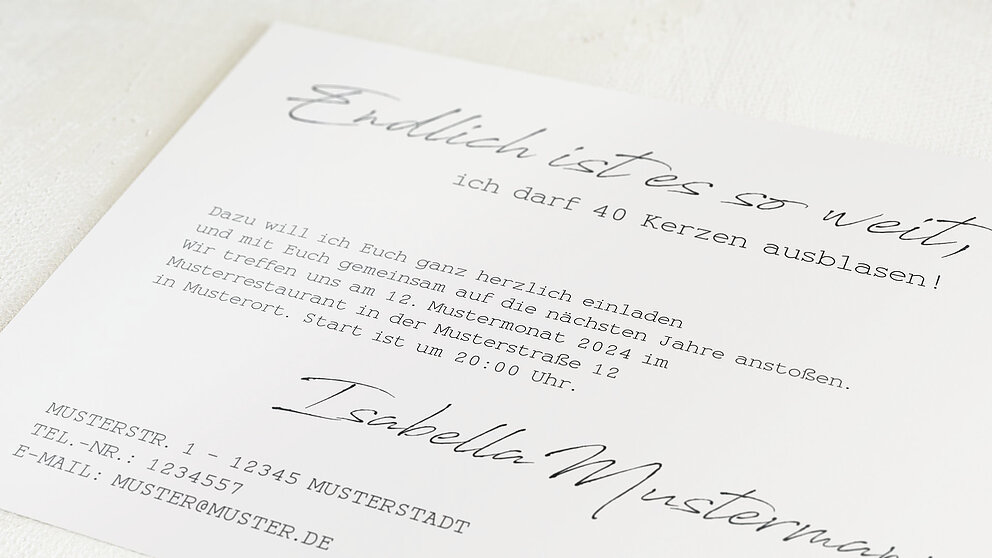 Endlich ist es so weit,
ich darf 40 Kerzen ausblasen!
Dazu will ich Euch ganz herzlich einladen
und mit Euch gemeinsam auf die nächsten Jahre anstoßen.
Wir treffen uns am 12. Mustermonat 2024 im
Musterrestaurant in der Musterstraße 12
in Musterort. Start ist um 20:00 Uhr.
Isabella Musterman
MUSTERSTR. 1 - 12345 MUSTERSTADT
TEL.-NR.: 1234557
E-MAIL: MUSTER@MUSTER.DE